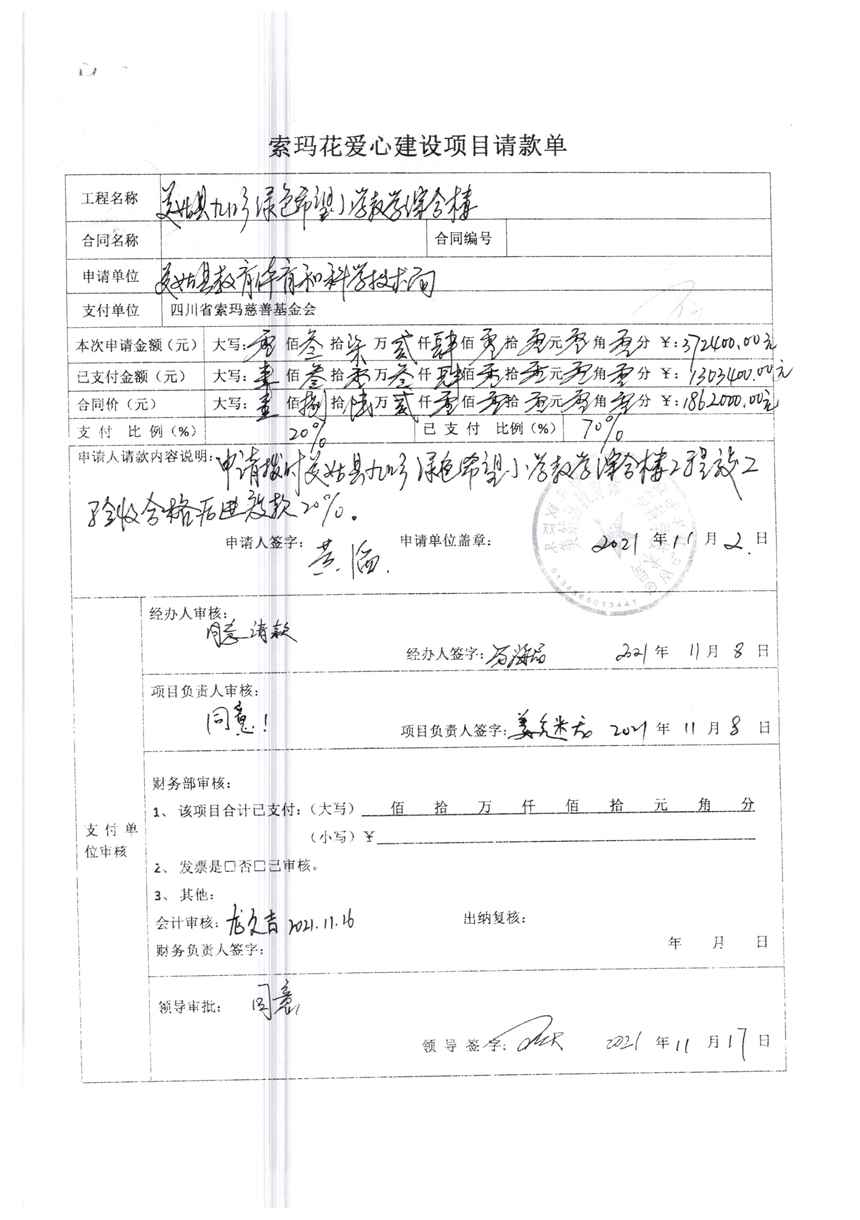 索玛花爱心建设项目请款单
工程名称 美姑县九口乡绿色希望小学教学综合楼
合同名称 合同编号
申请单位 美姑县教育体育和科学技术局
支付单位 四川省索玛慈善基金会
本次申请金额（元） 大写：零佰叁拾柒万贰仟肆佰零拾零元零角零分 ￥：372400.00元
已支付金额（元） 大写：壹佰叁拾零万叁仟肆佰零拾零元零角零分 ￥：1303400.00元
合同价（元） 大写：壹佰捌拾陆万贰仟零佰零拾零元零角零分 ￥：1862000.00元
支付 比例（%） 20% 已支付 比例（%） 70%
申请人请款内容说明：申请拨付美姑县九口乡绿色希望小学教学综合楼工程竣工
验收合格后进度款20%。
申请人签字： 申请单位盖章： 2021年11月2日
经办人审核：
同意请款
经办人签字： 2021年11月8日
项目负责人审核：
同意！
项目负责人签字： 2021年11月8日
财务部审核：
1、该项目合计已支付：（大写） 佰 拾 万 仟 佰 拾 元 角 分
（小写）￥
支付单
位审核
2、发票是□否□已审核。
3、其他：
会计审核：龙久吉 2021.11.16 出纳复核：
财务负责人签字： 年 月 日
领导审批： 同意
领导签字： 2021年11月17日